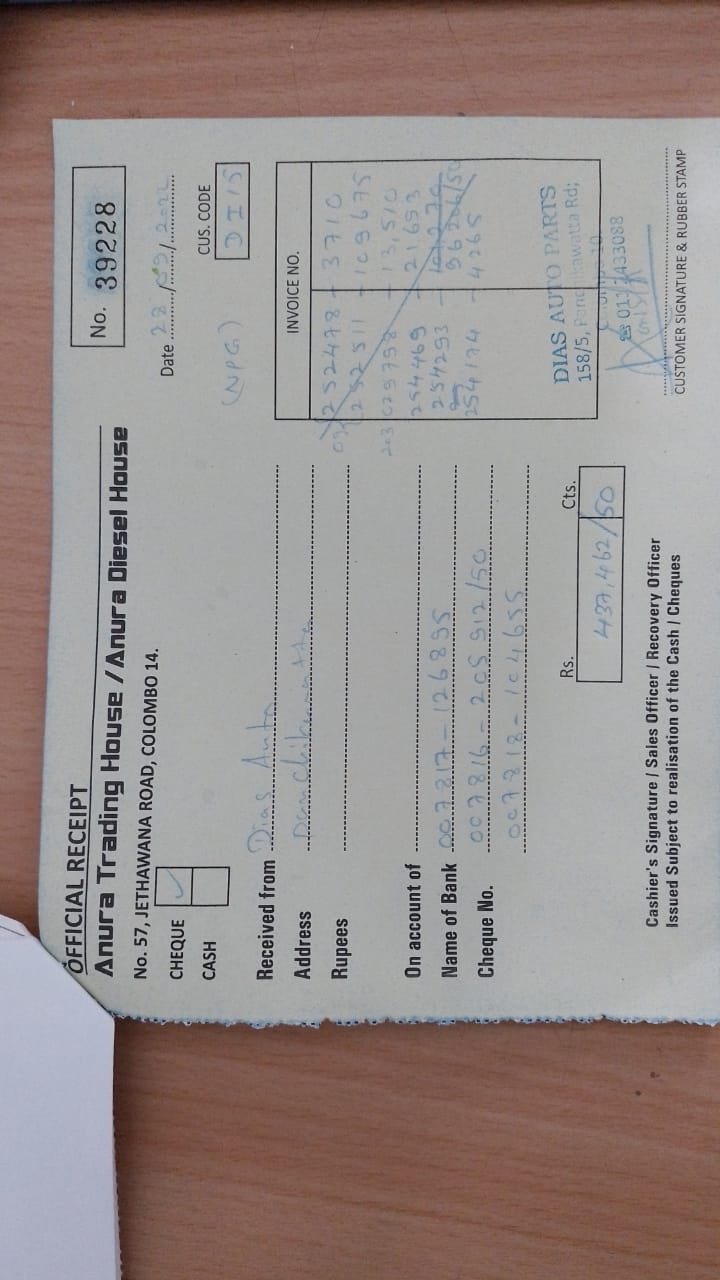 OFFICIAL RECEIPT
Anura Trading House / Anura Diesel House
No. 39228
No. 57, JETHAWANA ROAD, COLOMBO 14.
Date 28/09/2022
CHEQUE ✓
CASH
(NPG)
CUS. CODE
DI15
Received from Dias Auto
Address
Rupees
On account of
Name of Bank 007817 - 126895
Cheque No. 007816 - 205912/50
007818 - 104655
INVOICE NO.
252478 - 3710
252511 - 109675
203 029798 - 13,510
254469 - 21653
254293
96206/50
254174 - 4265
Rs. Cts.
437,462/50
DIAS AUTO PARTS
158/5, Panchikawatta Rd;
Colombo 10
☎ 011-2433088
CUSTOMER SIGNATURE & RUBBER STAMP
Cashier's Signature / Sales Officer / Recovery Officer
Issued Subject to realisation of the Cash / Cheques